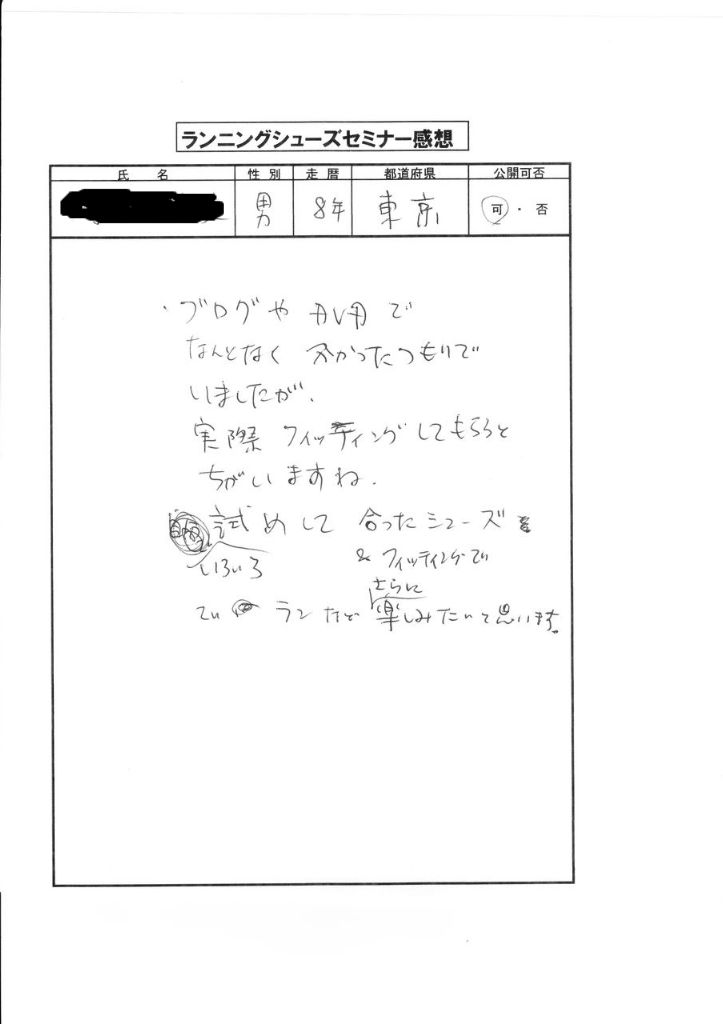 ランニングシューズセミナー感想
氏 名 性 別 走 暦 都道府県 公開可否
男 8年 東京 可 ・ 否
・ブログや で
なんとなく 分かったつもりで
いましたが、
実際 フィッティングしてもらうと
ちがいますね。
いろいろ
試めして 合ったシューズ
& フィッティングで
さらに
ラン 楽しみたいと思います。